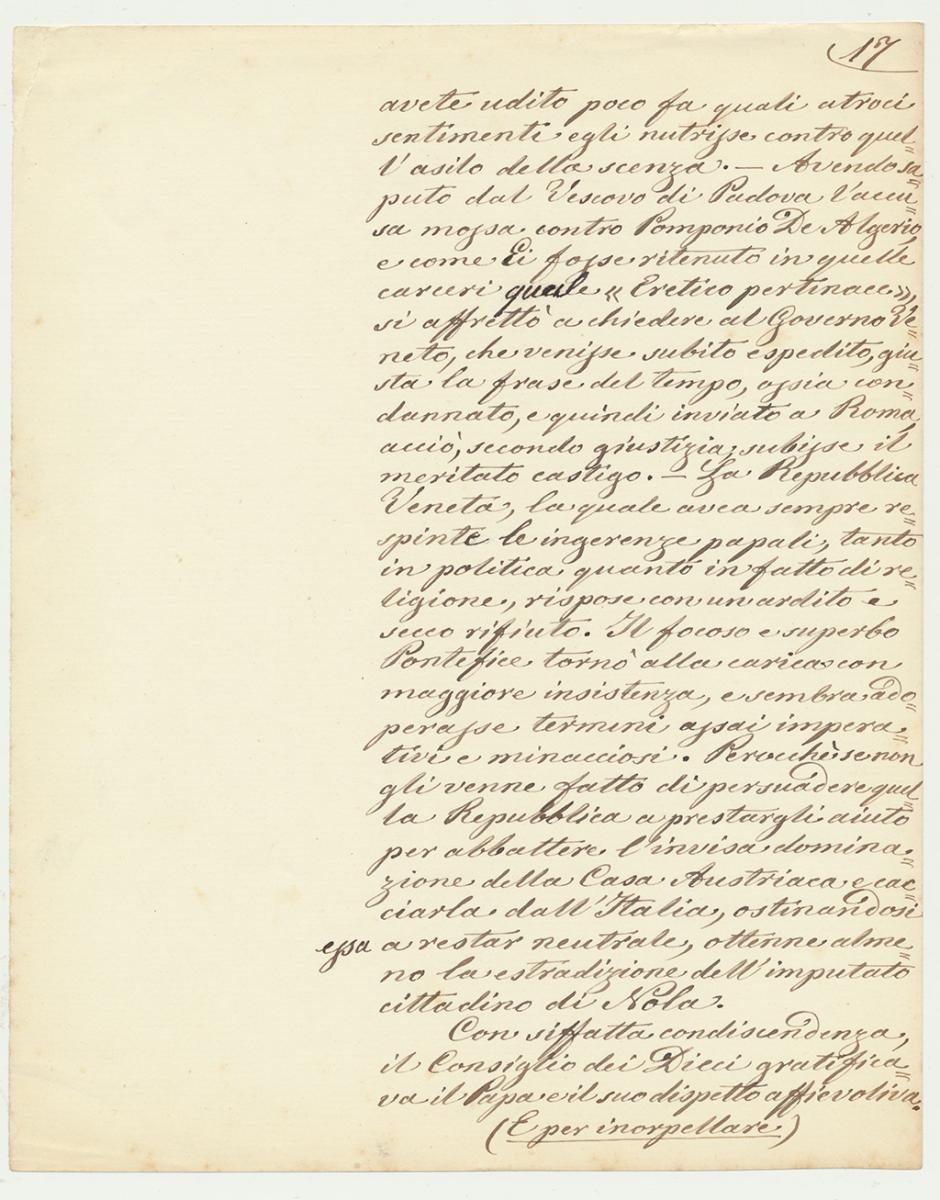 17
avete udito poco fa quali atroci
sentimenti egli nutrisse contro quel=
l'asilo della scenza. — Avendo sa=
puto dal Vescovo di Padova l'accu=
sa mossa contro Pomponio De Algerio,
e come Ei fosse ritenuto in quelle
carceri quale « Eretico pertinace »,
si affrettò a chiedere al Governo Ve=
neto, che venisse subito espedito, giu=
sta la frase del tempo, ossia con=
dannato, e quindi inviato a Roma,
acciò, secondo giustizia, subisse il
meritato castigo. — La Repubblica
Veneta, la quale avea sempre re=
spinte le ingerenze papali, tanto
in politica quanto in fatto di re=
ligione, rispose con un ardito e
secco rifiuto. Il focoso e superbo
Pontefice tornò alla carica con
maggiore insistenza, e sembra ado=
perasse termini assai impera=
tivi e minacciosi. Perocchè se non
gli venne fatto di persuadere quel=
la Repubblica a prestargli aiuto
per abbattere l'invisa domina=
zione della Casa Austriaca e cac=
ciarla dall'Italia, ostinandosi
essa a restar neutrale, ottenne alme=
no la estradizione dell'imputato
cittadino di Nola.
Con siffatta condiscendenza,
il Consiglio dei Dieci gratifica=
va il Papa e il suo dispetto affievoliva.
(E per inorpellare)